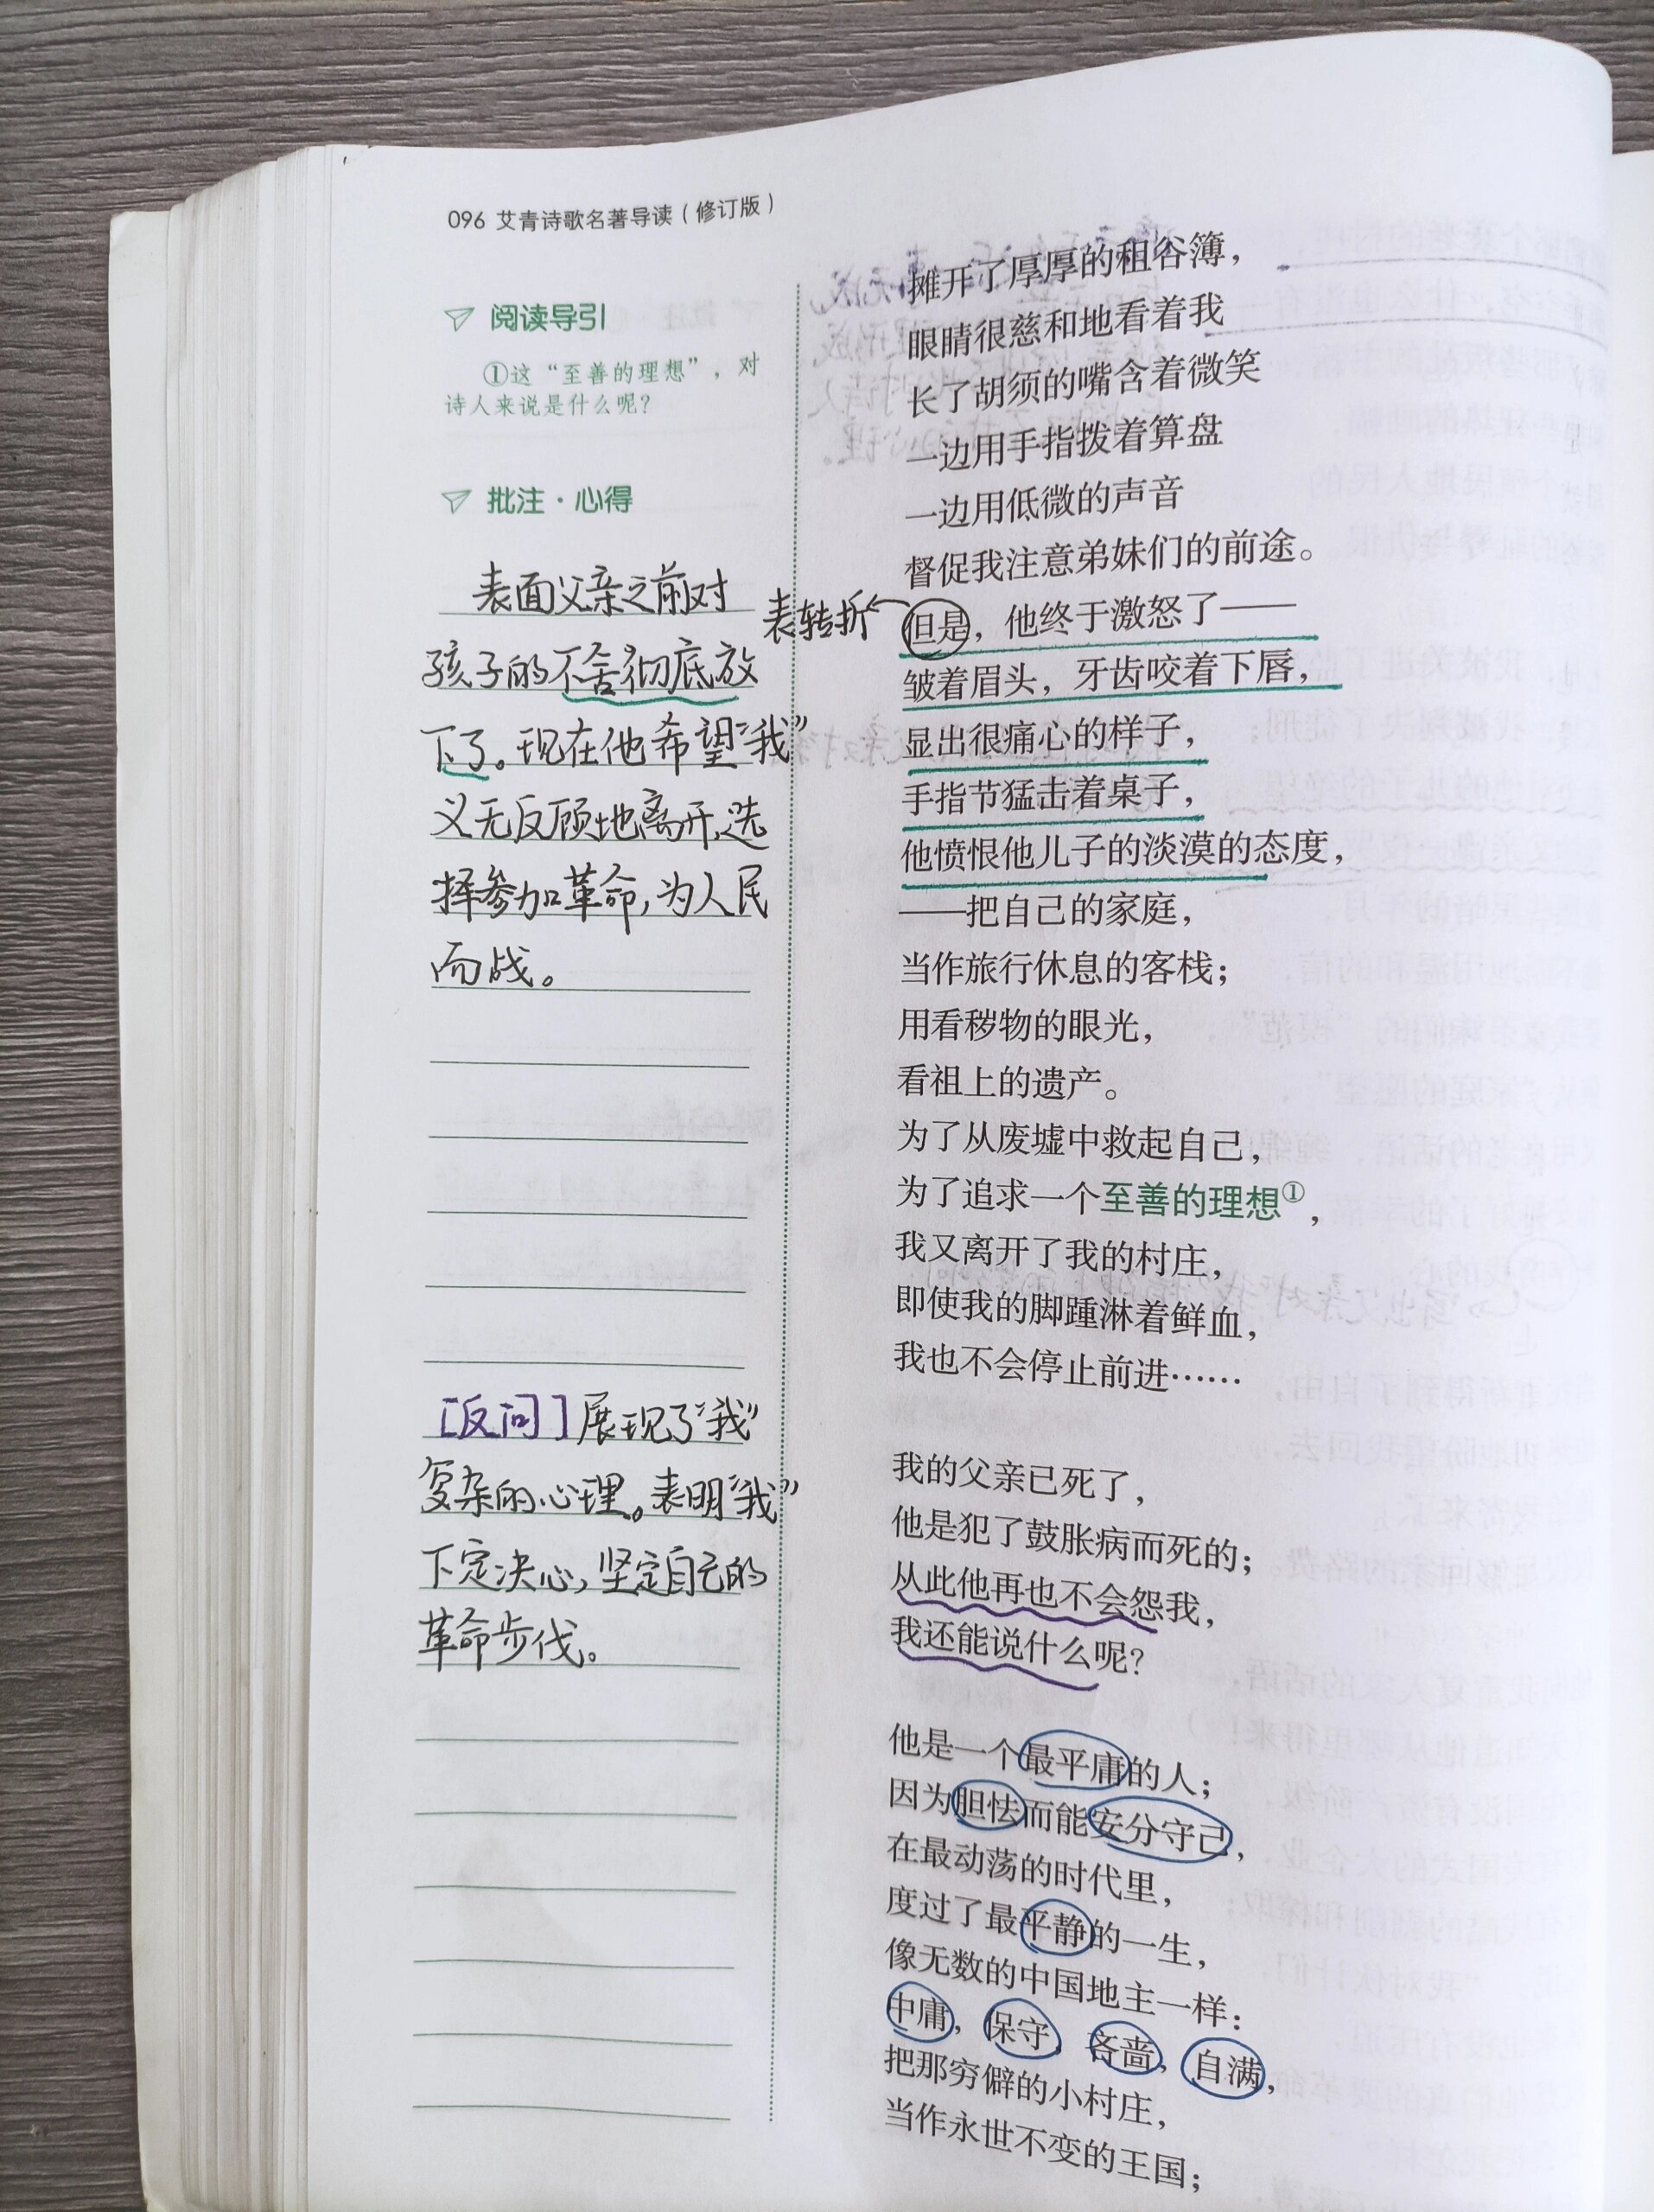 096 艾青诗歌名著导读（修订版）
阅读导引
①这“至善的理想”，对
诗人来说是什么呢？
批注·心得
表面父亲之前对
孩子的不舍彻底放
下了。现在他希望“我”
义无反顾地离开，选
择参加革命，为人民
而战。
[反问]展现了“我”
复杂的心理。表明“我”
下定决心，坚定自己的
革命步伐。
摊开了厚厚的租谷簿，
眼睛很慈和地看着我
长了胡须的嘴含着微笑
一边用手指拨着算盘
一边用低微的声音
督促我注意弟妹们的前途。
表转折
但是，他终于激怒了——
皱着眉头，牙齿咬着下唇，
显出很痛心的样子，
手指节猛击着桌子，
他愤恨他儿子的淡漠的态度，
——把自己的家庭，
当作旅行休息的客栈；
用看秽物的眼光，
看祖上的遗产。
为了从废墟中救起自己，
为了追求一个至善的理想①，
我又离开了我的村庄，
即使我的脚踵淋着鲜血，
我也不会停止前进……
我的父亲已死了，
他是犯了鼓胀病而死的；
从此他再也不会怨我，
我还能说什么呢？
他是一个最平庸的人；
因为胆怯而能安分守己，
在最动荡的时代里，
度过了最平静的一生，
像无数的中国地主一样：
中庸，保守，吝啬，自满，
把那穷僻的小村庄，
当作永世不变的王国；